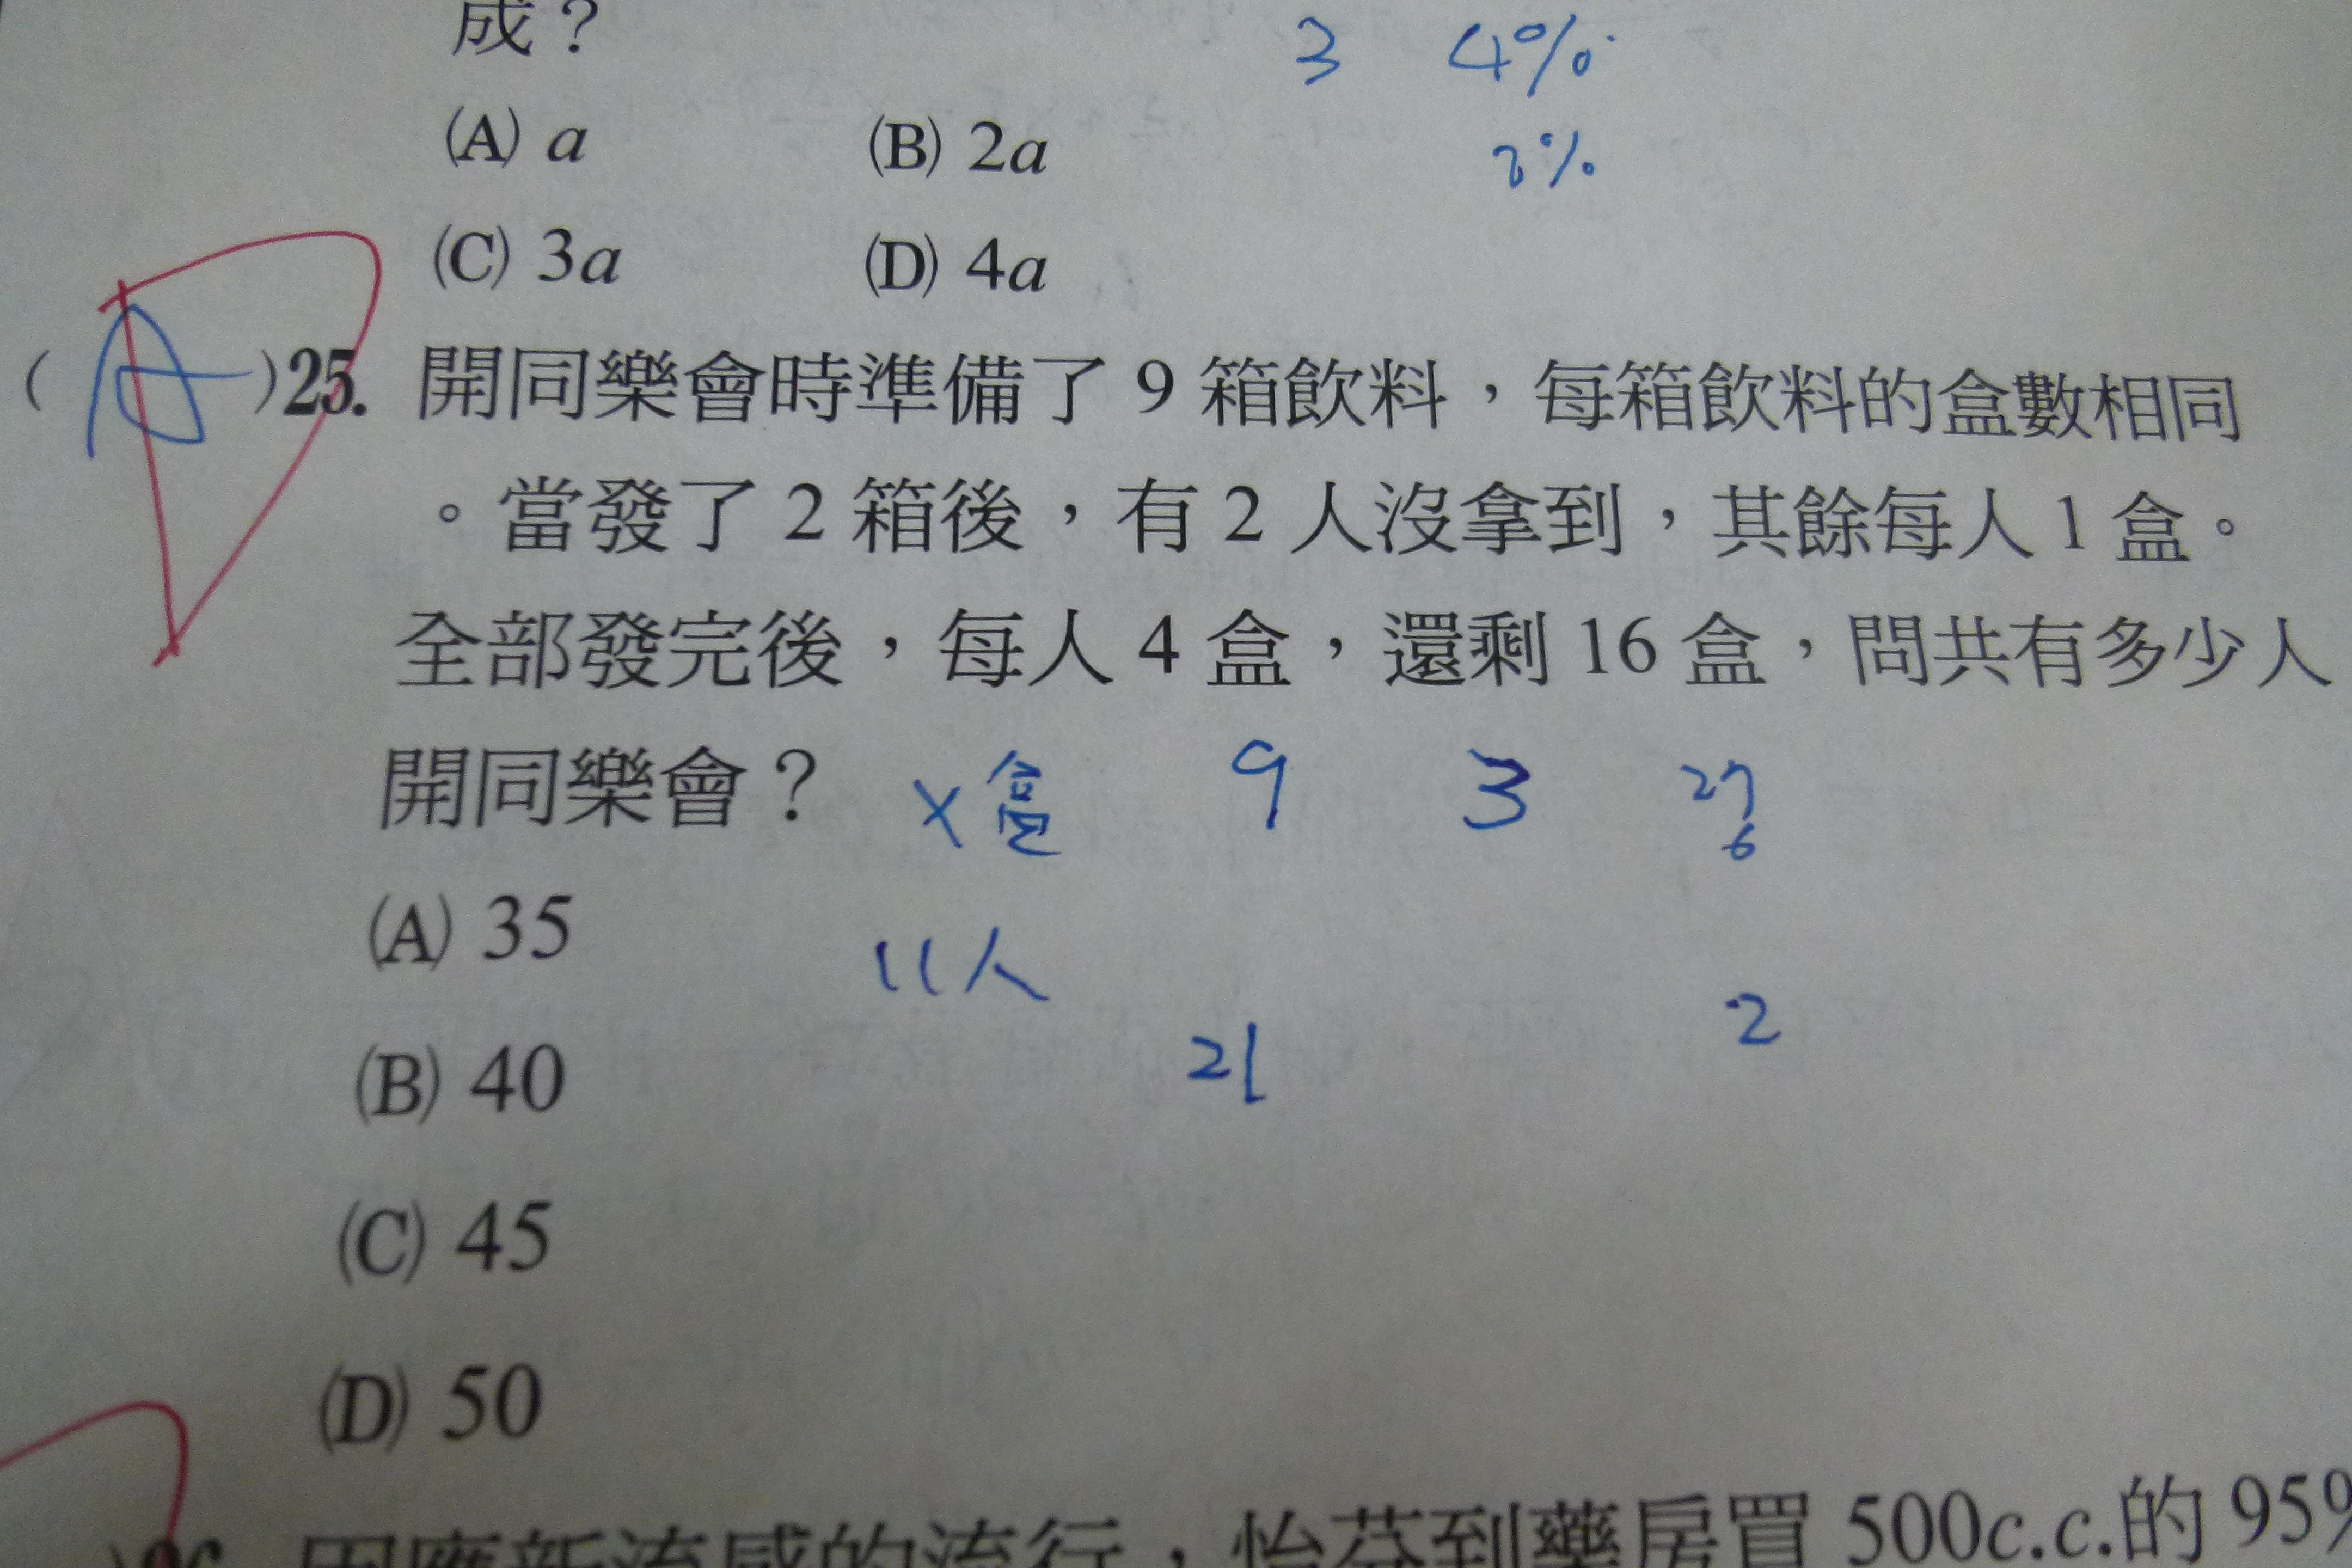 成？
3 4%
(A) a (B) 2a
2%
(C) 3a (D) 4a
( A )25. 開同樂會時準備了 9 箱飲料，每箱飲料的盒數相同
。當發了 2 箱後，有 2 人沒拿到，其餘每人 1 盒。
全部發完後，每人 4 盒，還剩 16 盒，問共有多少人
開同樂會？ x盒 9 3 27
6
(A) 35 11人
2
(B) 40 21
(C) 45
(D) 50
因應新流感的流行，怡芬到藥房買 500c.c.的 95%